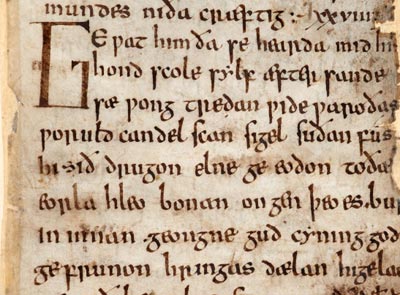 mundes niða cræftig:· xxviii
GEƿat him ða se hearda mid hi
hond scole sylf æfter sande
sæ ƿong tredan ƿide ƿaroðas
ƿoruld candel scan sigel suðan fus
hi sið drugon elne ge eodon toðæ
eorla hleo bonan on gen þeoes. bu
in innan geongne guð cyning god
ge frunon hringas dælan higela